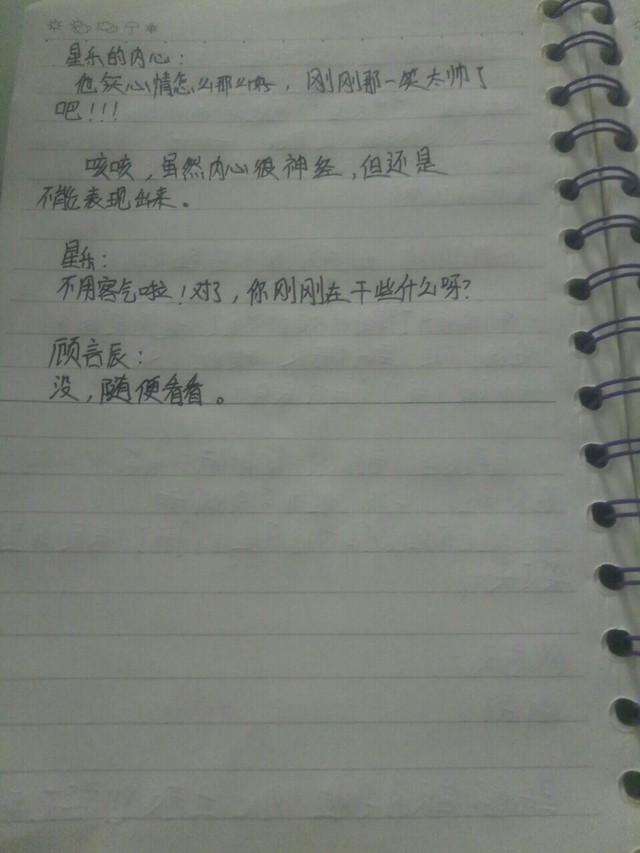 星乐的内心：
他今天心情怎么那么好，刚刚那一笑太帅了
吧!!!
咳咳，虽然内心很神经，但还是
不能表现出来。
星乐：
不用客气啦！对了，你刚刚在干些什么呀？
顾言辰：
没，随便看看。